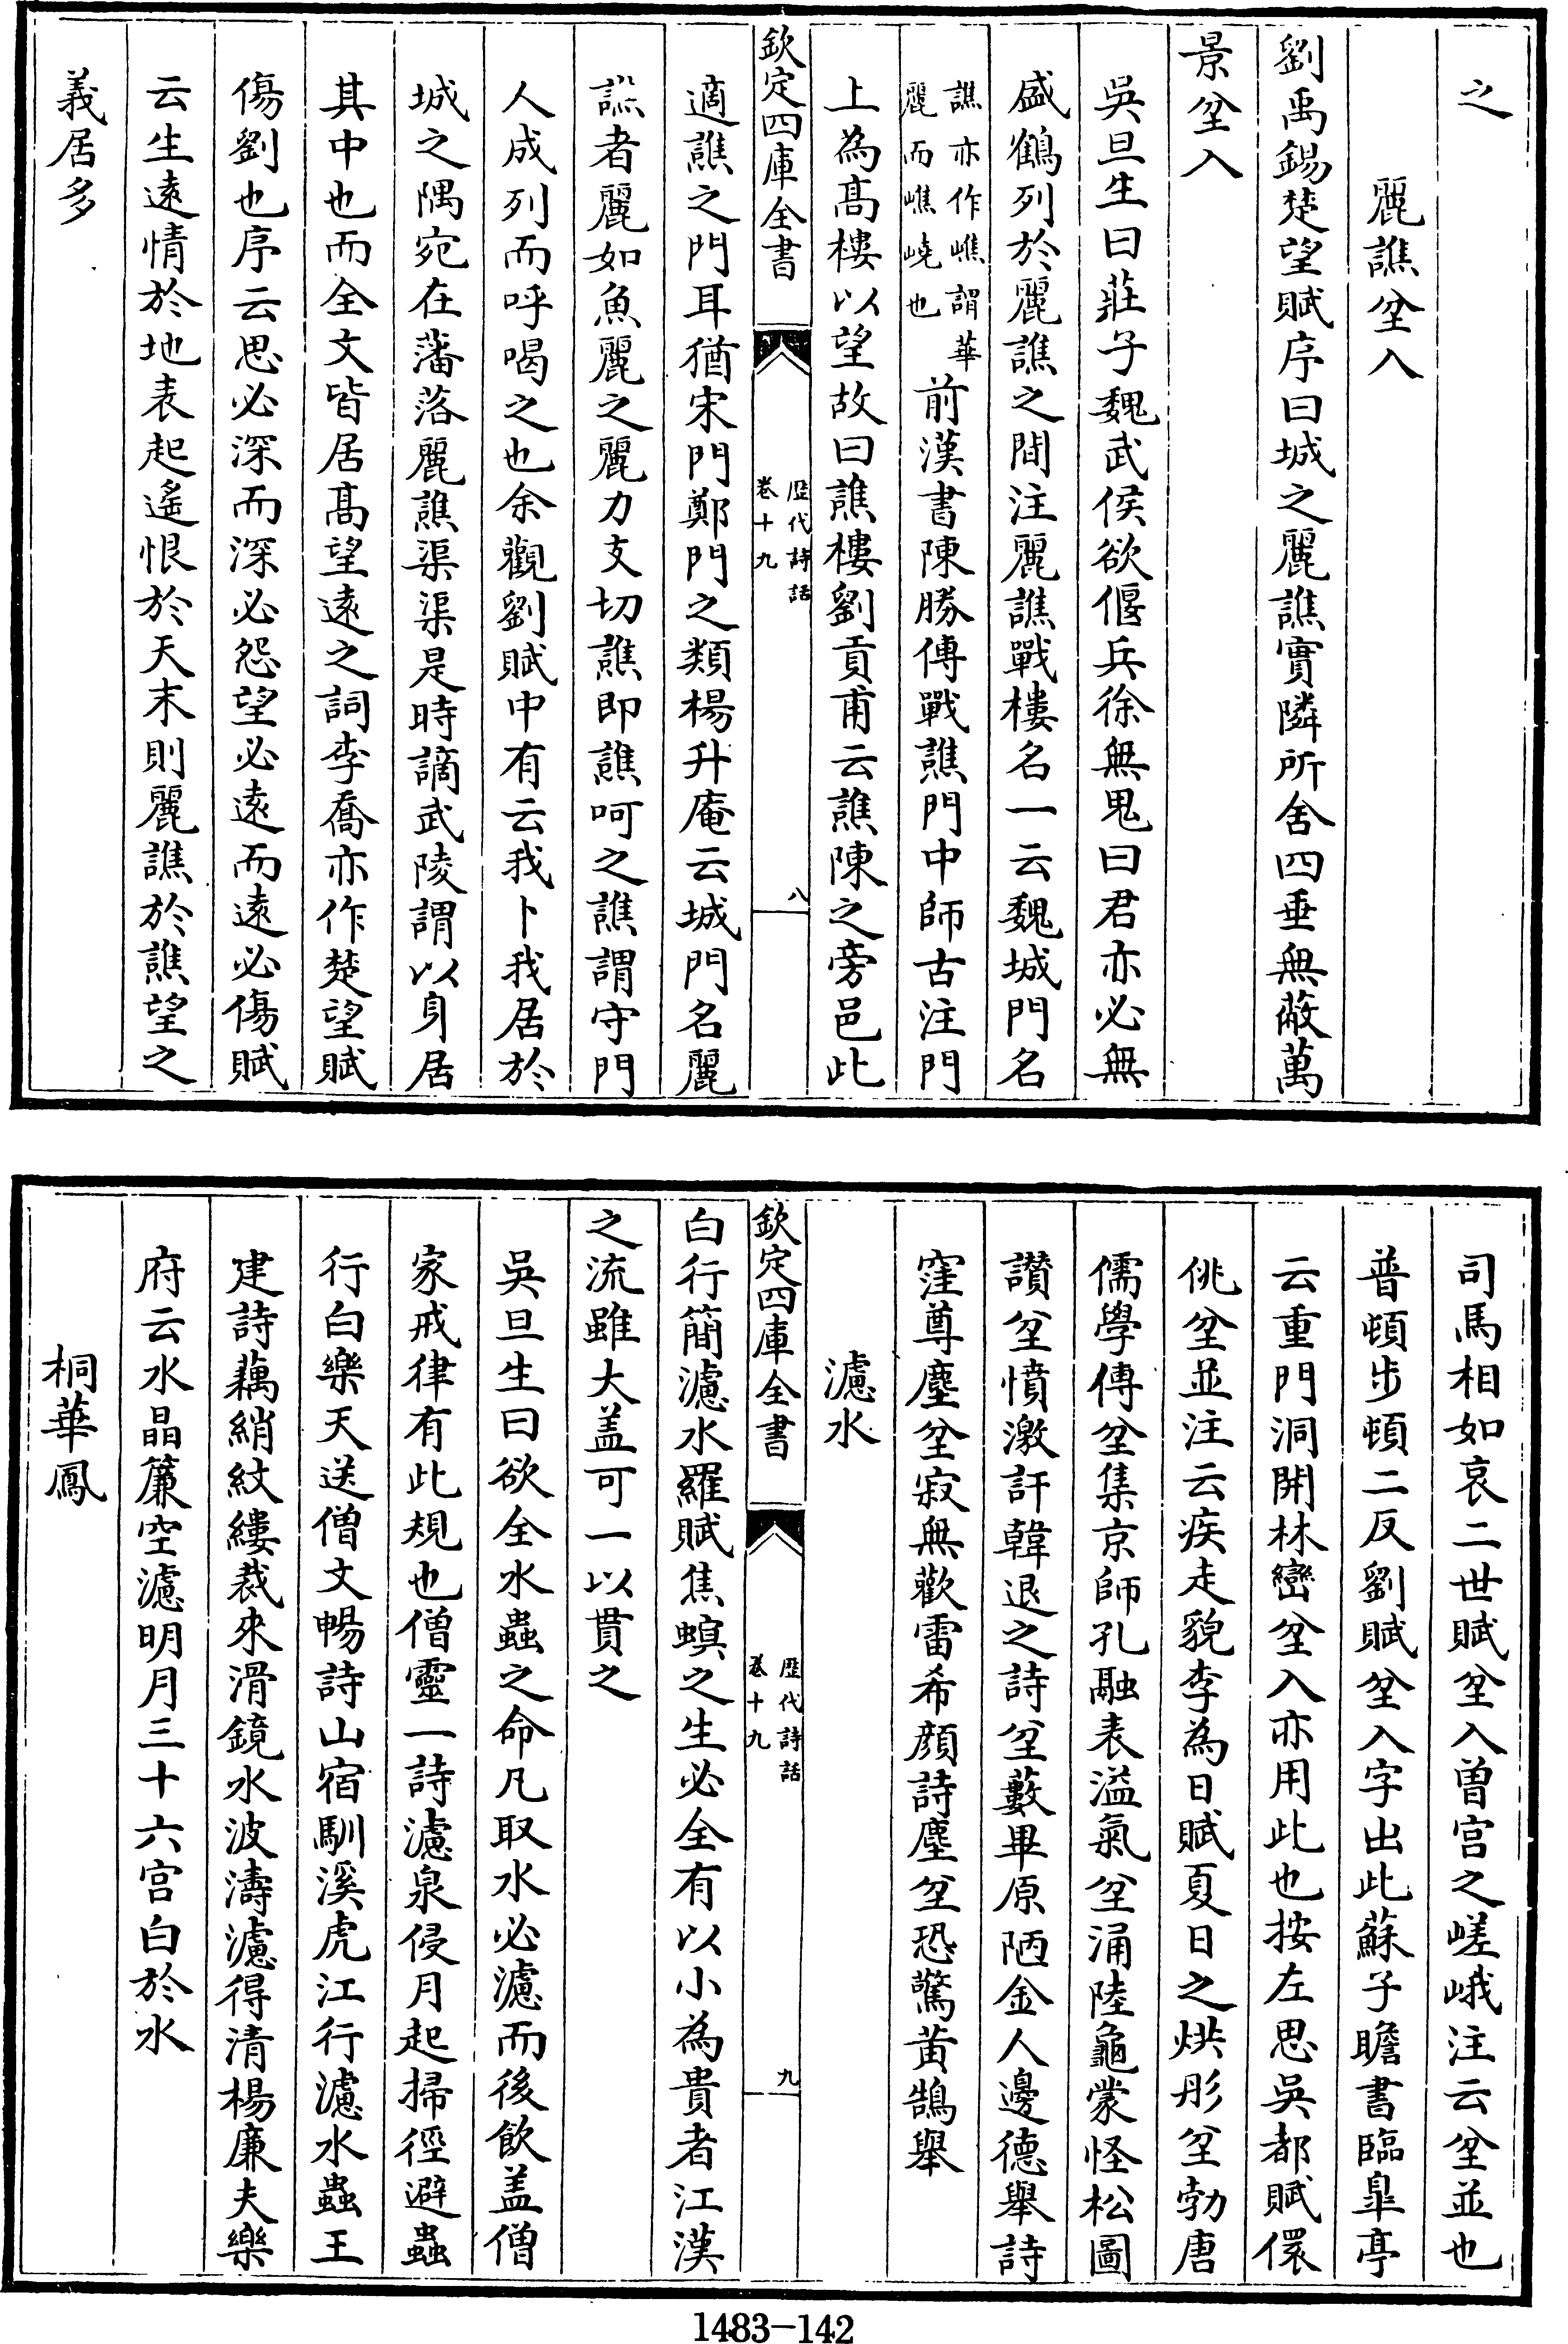 之
麗譙坌入
劉禹錫楚望賦序曰城之麗譙實隣所舍四垂無蔽萬
景坌入
吳旦生曰莊子魏武侯欲偃兵徐無鬼曰君亦必無
盛鶴列於麗譙之間注麗譙戰樓名一云魏城門名
譙亦作嶕謂華
麗而嶕嶢也
前漢書陳勝傳戰譙門中師古注門
上為髙樓以望故曰譙樓劉貢甫云譙陳之旁邑此
欽定四庫全書
歴代詩話
卷十九
八
適譙之門耳猶宋門鄭門之類楊升庵云城門名麗
譙者麗如魚麗之麗力支切譙即譙呵之譙謂守門
人成列而呼喝之也余觀劉賦中有云我卜我居於
城之隅宛在藩落麗譙渠渠是時謫武陵謂以身居
其中也而全文皆居髙望逺之詞李喬亦作楚望賦
傷劉也序云思必深而深必怨望必逺而逺必傷賦
云生逺情於地表起遙恨於天末則麗譙於譙望之
義居多
司馬相如哀二世賦坌入曽宫之嵯峨注云坌並也
普頓步頓二反劉賦坌入字出此蘇子瞻書臨臯亭
云重門洞開林巒坌入亦用此也按左思吳都賦儇
佻坌並注云疾走貌李為日賦夏日之烘彤坌勃唐
儒學傳坌集京師孔融表溢氣坌涌陸龜蒙怪松圖
讃坌憤激訐韓退之詩坌藪畢原陋金人邊德舉詩
窪尊塵坌寂無歡雷希顔詩塵坌恐驚黄鵠舉
濾水
欽定四庫全書
歴代詩話
卷十九
九
白行簡濾水羅賦焦螟之生必全有以小為貴者江漢
之流雖大盖可一以貫之
吳旦生曰欲全水蟲之命凡取水必濾而後飲盖僧
家戒律有此規也僧靈一詩濾泉侵月起掃徑避蟲
行白樂天送僧文暢詩山宿馴溪虎江行濾水蟲王
建詩藕綃紋縷裁來滑鏡水波濤濾得清楊廉夫樂
府云水晶簾空濾明月三十六宫白於水
桐華鳳
1483-142